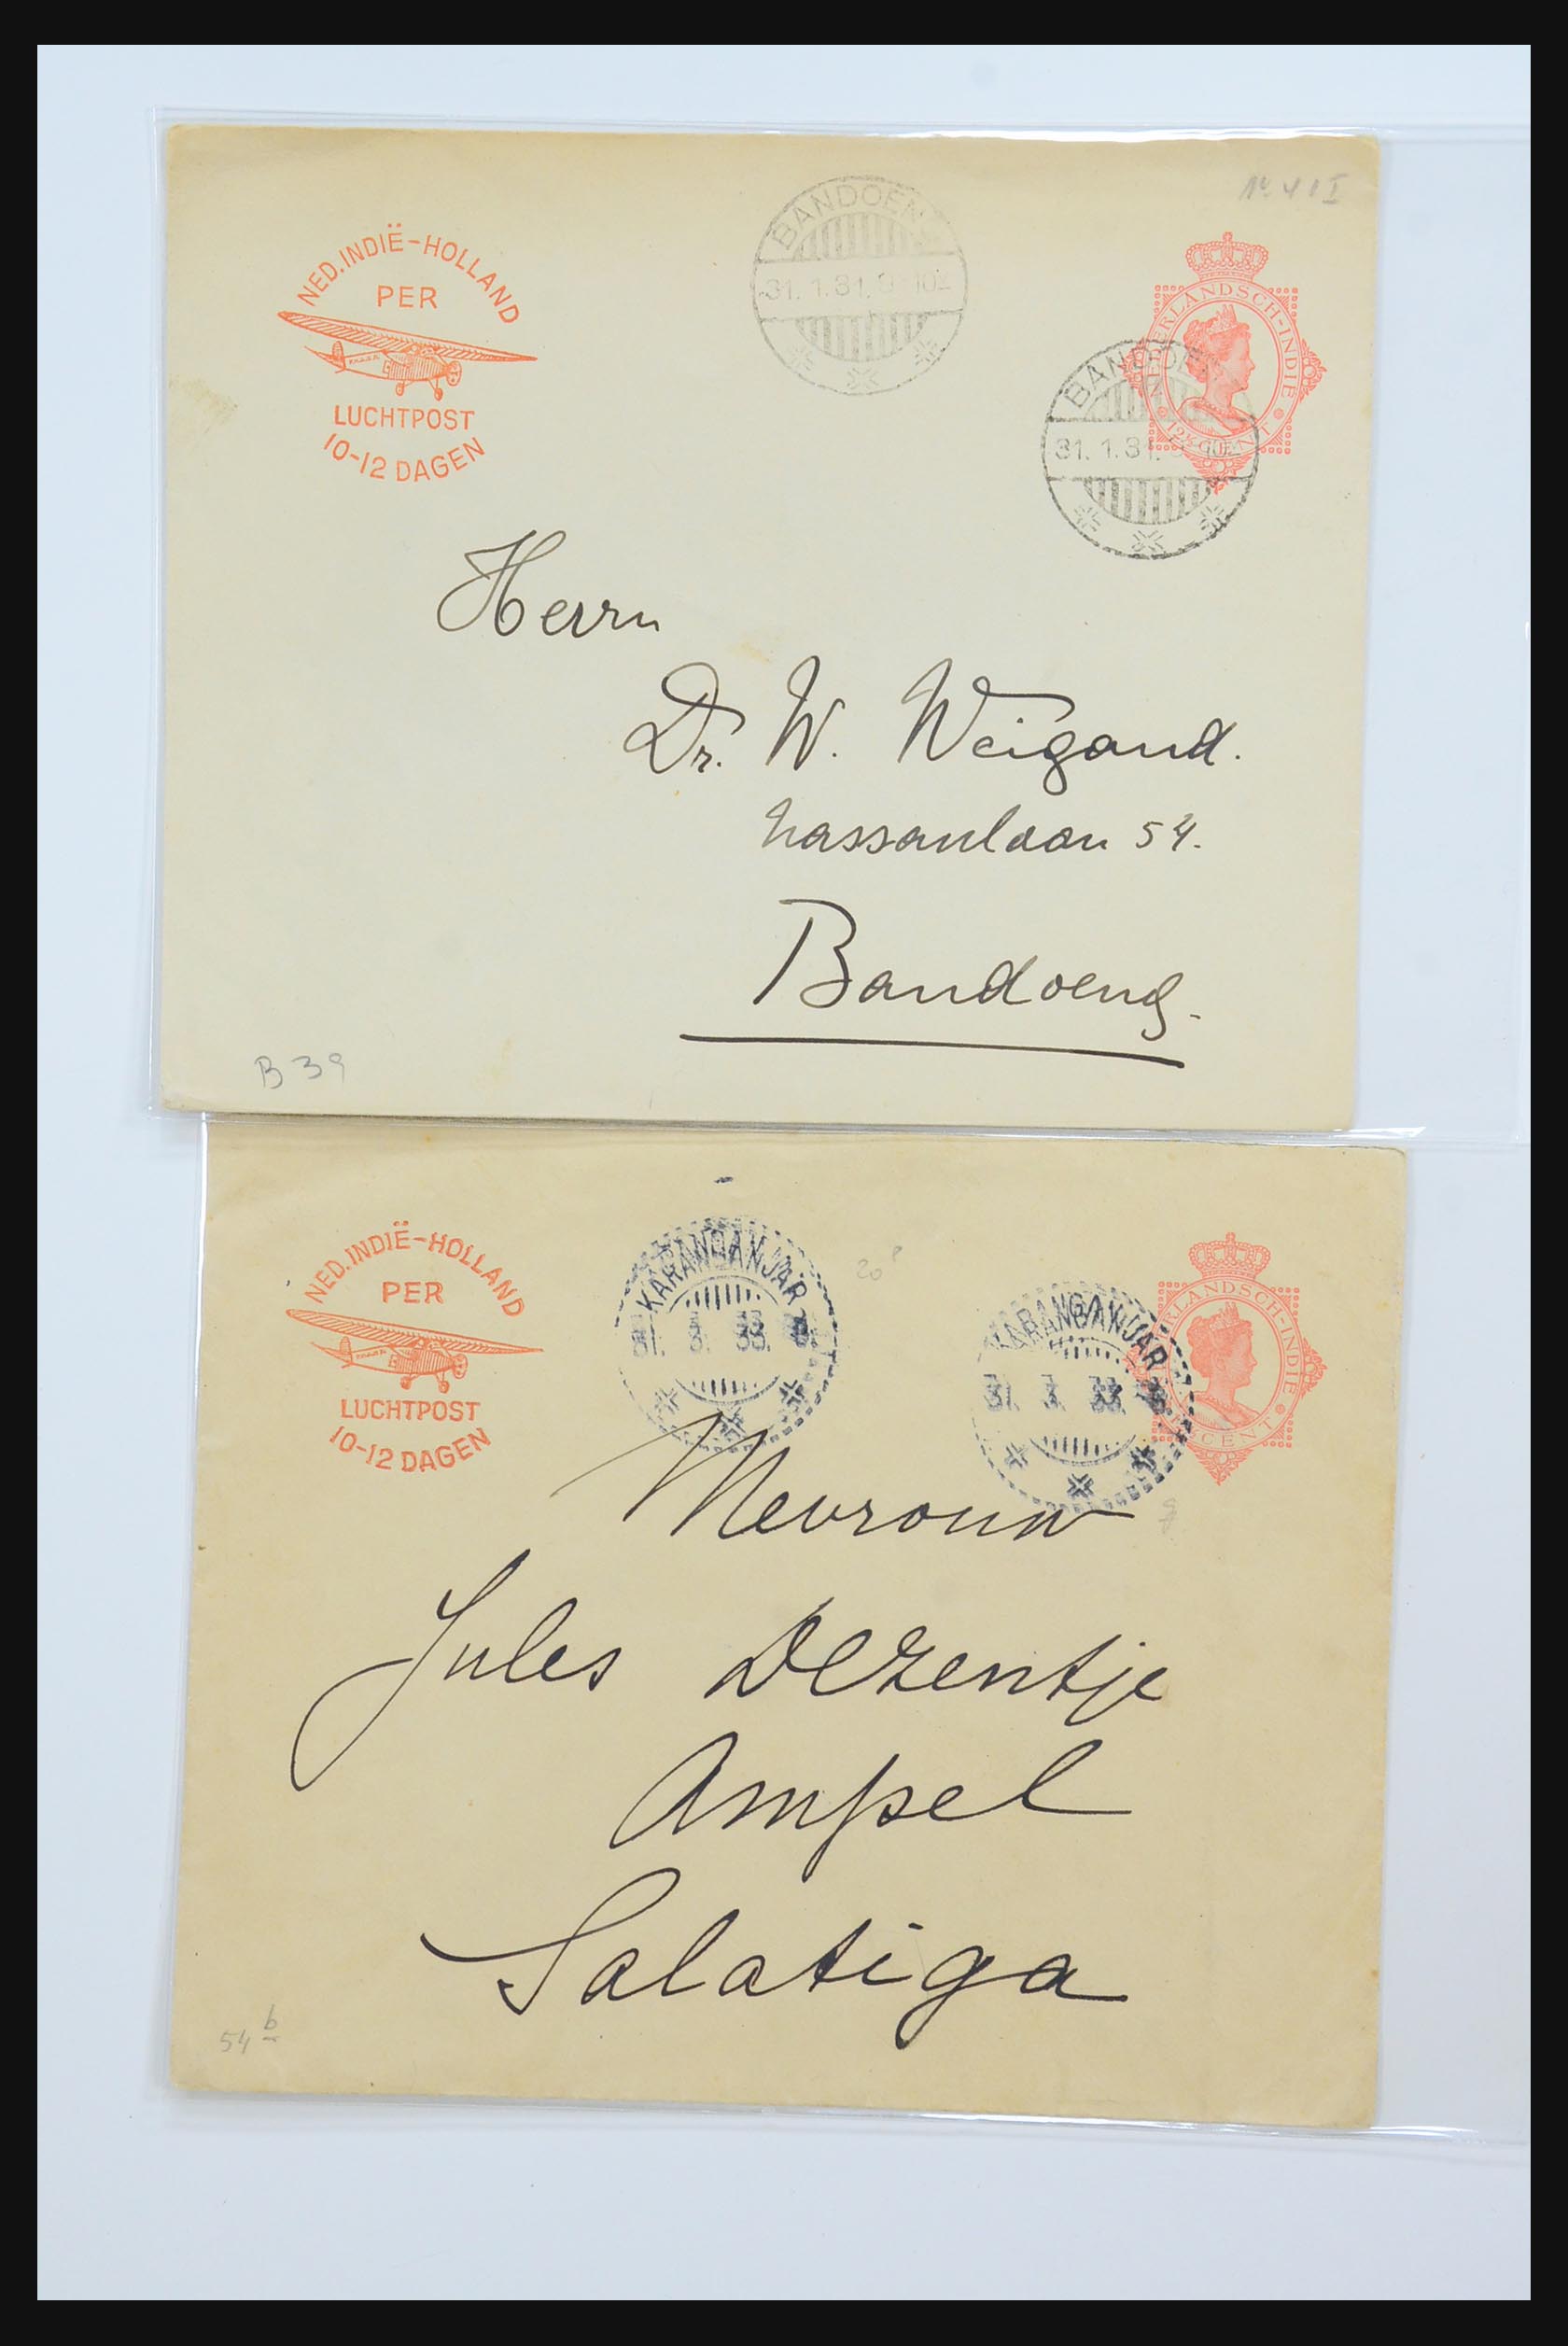 NED. INDIË-HOLLAND
PER
LUCHTPOST
10-12 DAGEN
BANDOEN
31. 1.31. 9-10
BANDOE
31. 1.31.
NEDERLANDSCH-INDIE
12½ CENT
Herrn
Dr. W. Weigand.
Nassaulaan 54.
Bandoeng.
B 39
NED. INDIË-HOLLAND
PER
LUCHTPOST
10-12 DAGEN
KARANGANJAR
31. 3. 33.
20
KARANGANJAR
31. 3. 33.
ERLANDSCH-INDIE
CENT
Mevrouw
Jules Dezentje
Ampel
Salatiga
54 b